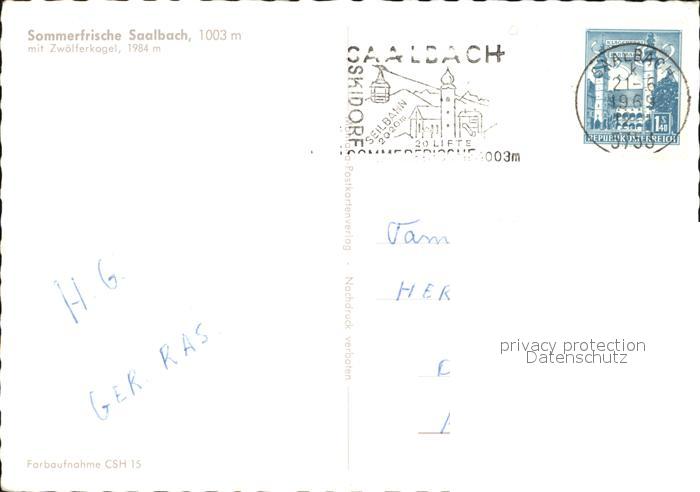 Sommerfrische Saalbach, 1003 m
mit Zwölferkogel, 1984 m
SAALBACH
SKIDORF
SEILBAHN
2020m
20 LIFTE
SOMMERFRISCHE 1003m
SAALBACH
21-6
1969
5753
1.50
REPUBLIK ÖSTERREICH
Postkartenverlag · Nachdruck verboten
H. G.
GER. RAS.
Fam
HER
privacy protection
Datenschutz
Farbaufnahme CSH 15